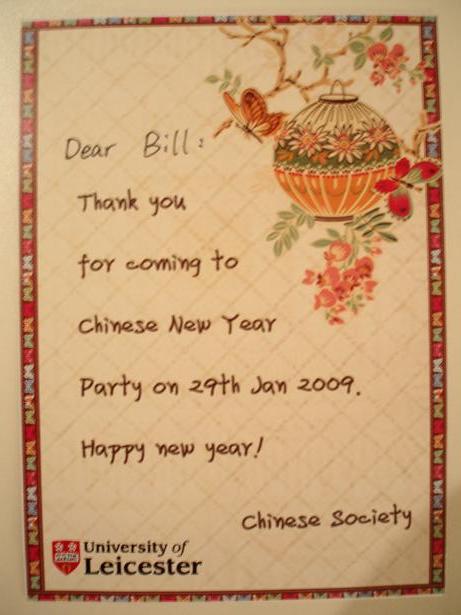 Dear Bill:
Thank you
for coming to
Chinese New Year
Party on 29th Jan 2009.
Happy new year!
Chinese Society
University of
Leicester